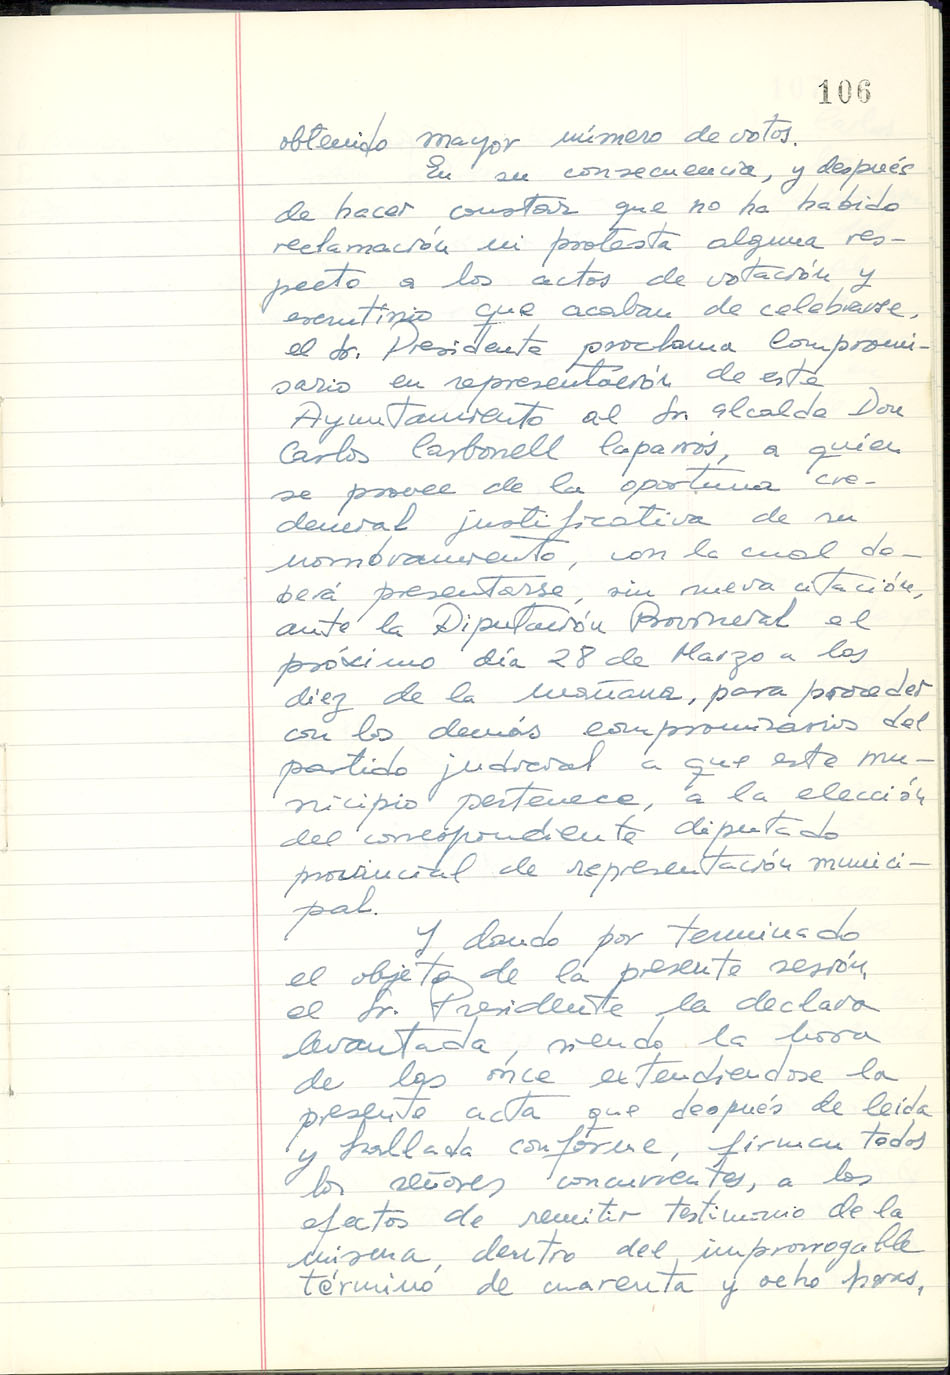 106
obtenido mayor número de votos.
En su consecuencia, y después
de hacer constar que no ha habido
reclamación ni protesta alguna res-
pecto a los actos de votación y
escrutinio que acaban de celebrarse,
el Sr. Presidente proclama Compromi-
sario en representación de este
Ayuntamiento al Sr. Alcalde Don
Carlos Carbonell Laparrós, a quien
se provee de la oportuna cre-
dencial justificativa de su
nombramiento, con la cual de-
berá presentarse, sin nueva citación,
ante la Diputación Provincial el
próximo día 28 de Marzo a las
diez de la mañana, para proceder
con los demás compromisarios del
partido judicial a que este mu-
nicipio pertenece, a la elección
del correspondiente diputado
provincial de representación munici-
pal.
Y dando por terminado
el objeto de la presente sesión,
el Sr. Presidente la declara
levantada, siendo la hora
de las once extendiendose la
presente acta que después de leida
y hallada conforme, firman todos
los señores concurrentes, a los
efectos de remitir testimonio de la
misma, dentro del improrrogable
término de cuarenta y ocho horas,